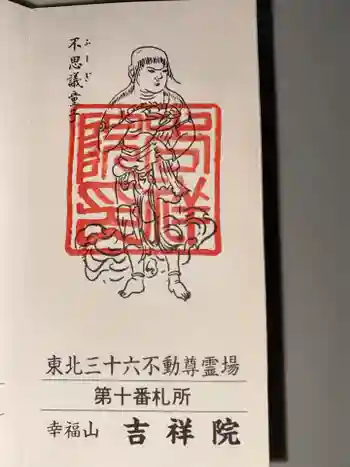 不思議童子
ふしぎ
吉祥院印
東北三十六不動尊霊場
第十番札所
幸福山 吉祥院